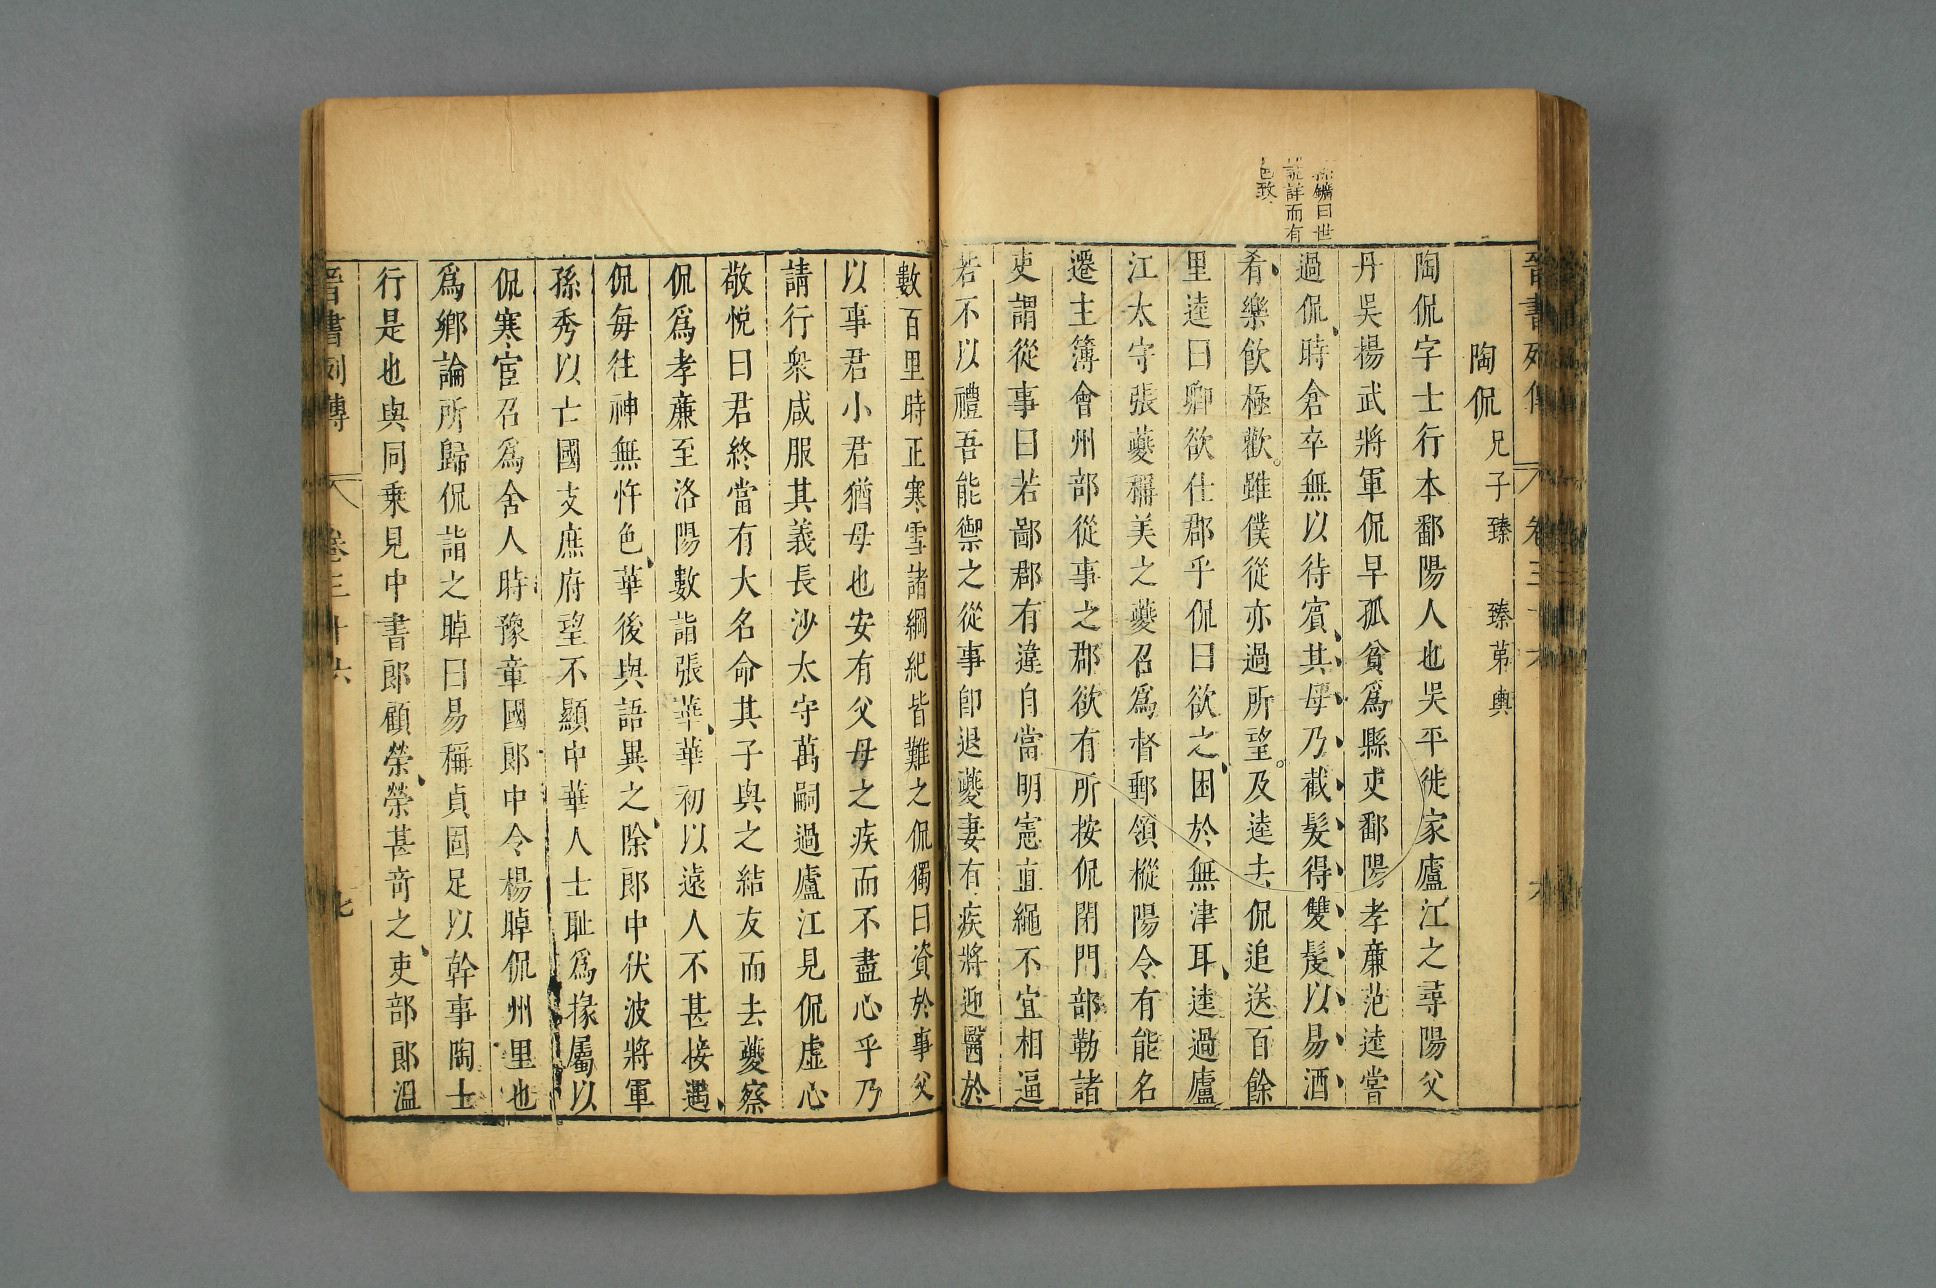 晉書列傳 卷三十六 六
陶侃 兄子臻 臻弟輿
陶侃字士行本鄱陽人也吳平徙家廬江之尋陽父
丹吳揚武將軍侃早孤貧爲縣吏鄱陽孝廉范逵嘗
過侃時倉卒無以待賓其母乃截髮得雙髲以易酒
肴樂飲極歡雖僕從亦過所望及逵去侃追送百餘
里逵曰卿欲仕郡乎侃曰欲之困於無津耳逵過廬
江太守張夔稱美之夔召爲督郵領樅陽令有能名
遷主簿會州部從事之郡欲有所按侃閉門部勒諸
吏謂從事曰若鄙郡有違自當明憲直繩不宜相逼
若不以禮吾能禦之從事卽退夔妻有疾將迎醫於
鑛曰世
說詳而有
色致
數百里時正寒雪諸綱紀皆難之侃獨曰資於事父
以事君小君猶母也安有父母之疾而不盡心乎乃
請行衆咸服其義長沙太守萬嗣過廬江見侃虛心
敬悅曰君終當有大名命其子與之結友而去夔察
侃爲孝廉至洛陽數詣張華華初以遠人不甚接遇
侃每往神無忤色華後與語異之除郎中伏波將軍
孫秀以亡國支庶府望不顯中華人士恥爲掾屬以
侃寒宦召爲舍人時豫章國郎中令楊晫侃州里也
爲鄉論所歸侃詣之晫曰易稱貞固足以幹事陶士
行是也與同乘見中書郎顧榮榮甚奇之吏部郎溫
晉書列傳 卷三十六 七